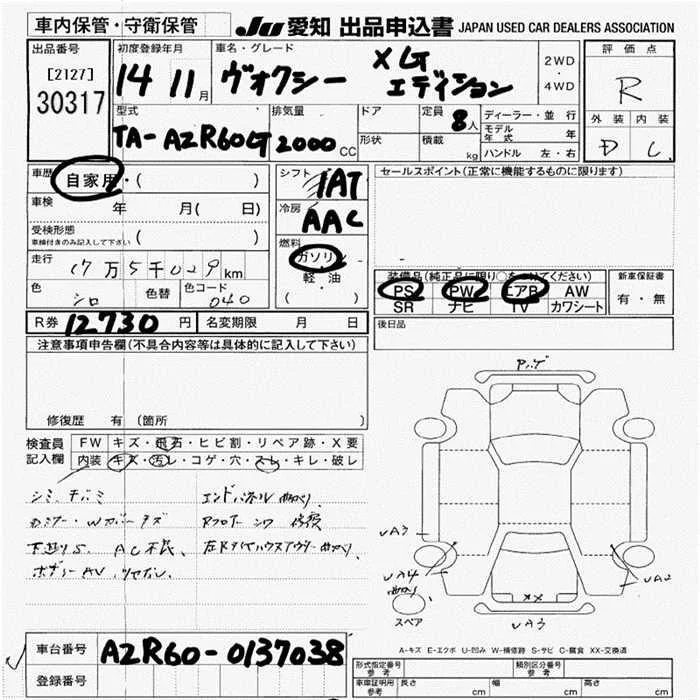 車内保管・守衛保管
JU 愛知 出品申込書 JAPAN USED CAR DEALERS ASSOCIATION
出品番号
[2127]
30317
初度登録年月
14 11月
車名・グレード
ヴォクシー XG エディション
2WD
・
4WD
評価点
R
外装 内装
D C
型式
TA-AZR60G
排気量
2000CC
ドア
形状
定員
8人
積載
kg
ディーラー・並行
モデル年式 年
ハンドル 左・右
車歴
自家用・( )
車検
年 月(日)
受検形態
車検付きのみ記入して下さい ( )
走行
17万5千029km
色
シロ
色替
色コード
040
シフト
IAT
冷房
AAC
燃料
ガソリン
軽・油
( )
セールスポイント(正常に機能するものに限ります)
装備品(純正品に限り○をつけてください)
PS PW エアB AW
SR ナビ TV カワシート
新車保証書
有・無
R券 12730円
名変期限 月 日
後日品
注意事項申告欄(不具合内容等は具体的に記入して下さい)
修復歴 有 (箇所 )
検査員記入欄
FW キズ・飛石・ヒビ割・リペア跡・X要
内装 キズ・汚レ・コゲ・穴・スレ・キレ・破レ
シミ
エンドパネル曲り
Rフロアー シワ 修復
下廻りS AC不良
UA3
UA4
曲り
UA2
XX
UA3
スペア
A-キズ E-エクボ U-凹み W-補修跡 S-サビ C-腐食 XX-交換済
車台番号 AZR60-0137038
登録番号
形式指定番号 参考
類別区分番号 参考
車庫証明用 参考
長さ cm
幅 cm
高さ cm